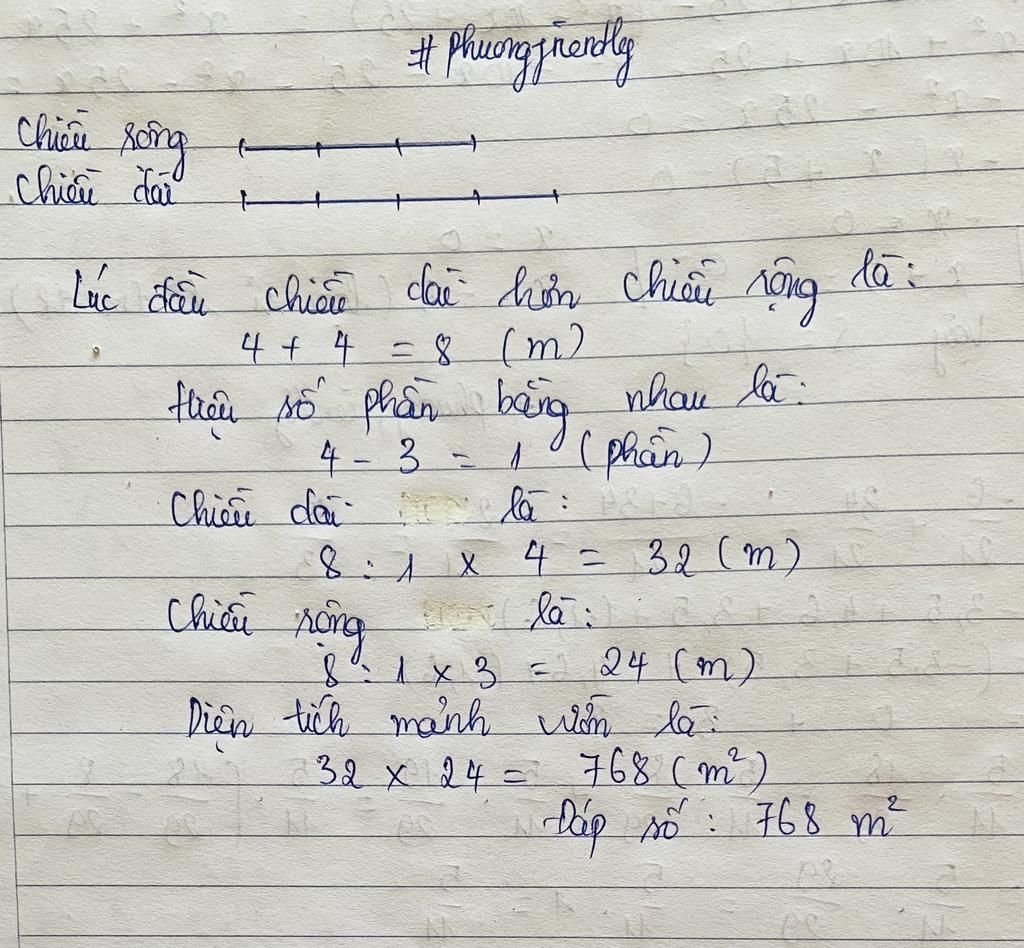 #phuongfriendly
Chiều rộng
Chiều dài
Lúc đầu chiều dài hơn chiều rộng là:
4 + 4 = 8 (m)
Hiệu số phần bằng nhau là:
4 - 3 = 1 (phần)
Chiều dài là:
8 : 1 x 4 = 32 (m)
Chiều rộng là:
8 : 1 x 3 = 24 (m)
Diện tích mảnh vườn là:
32 x 24 = 768 (m²)
Đáp số : 768 m²